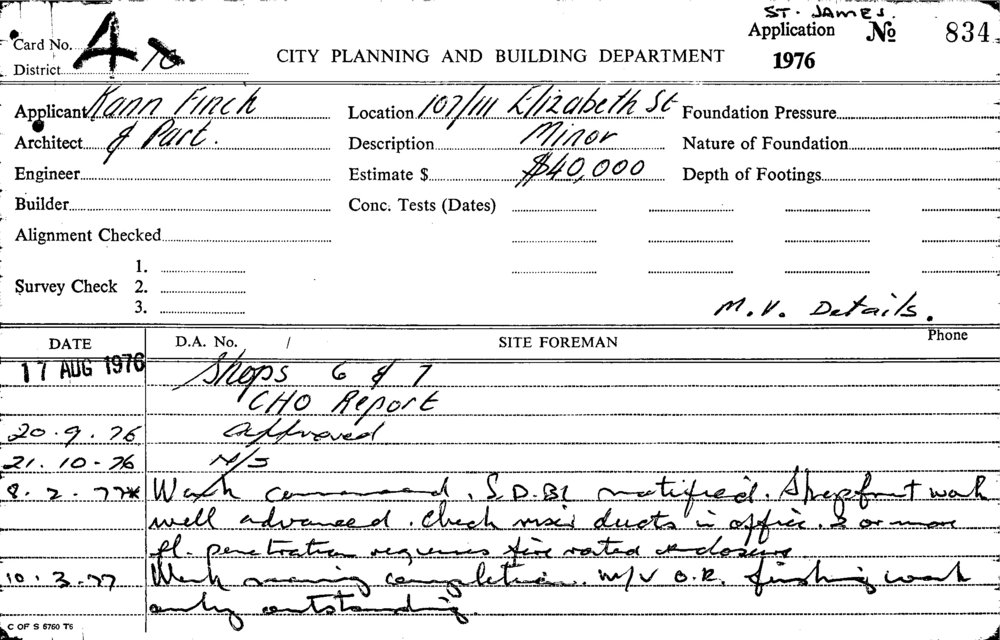 ST. JAMES.
Card No. 4 76
District
CITY PLANNING AND BUILDING DEPARTMENT
Application No 834
1976
Applicant Kann Finch
Location 107/111 Elizabeth St
Foundation Pressure
Architect & Part.
Description Minor
Nature of Foundation
Engineer
Estimate $ $40,000
Depth of Footings
Builder
Conc. Tests (Dates)
Alignment Checked
Survey Check 1.
2.
3.
M.V. Details.
DATE D.A. No. / SITE FOREMAN Phone
17 AUG 1976 Shops 6 & 7
CHO Report
20.9.76 approved
21.10-76 N/S
8.2.77* Work commenced. S.D.BI notified. Shopfront work
well advanced. Check duct in office. 2 or more
fl. penetration requires fire rated enclosure
10.3.77 Work nearing completion. M/V O.K. finishing work
only outstanding.
C OF S 5760 T6